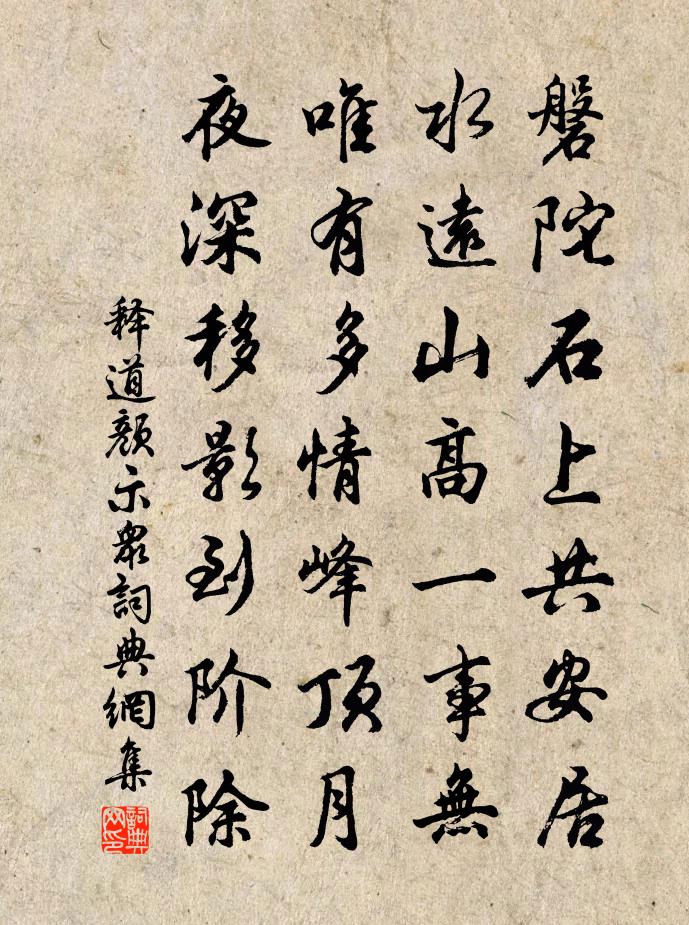 磐陀石上共安居
水遠山高一事無
唯有多情峰顶月
夜深移影到阶除
释道颜示衆詞典網集
詞典网印